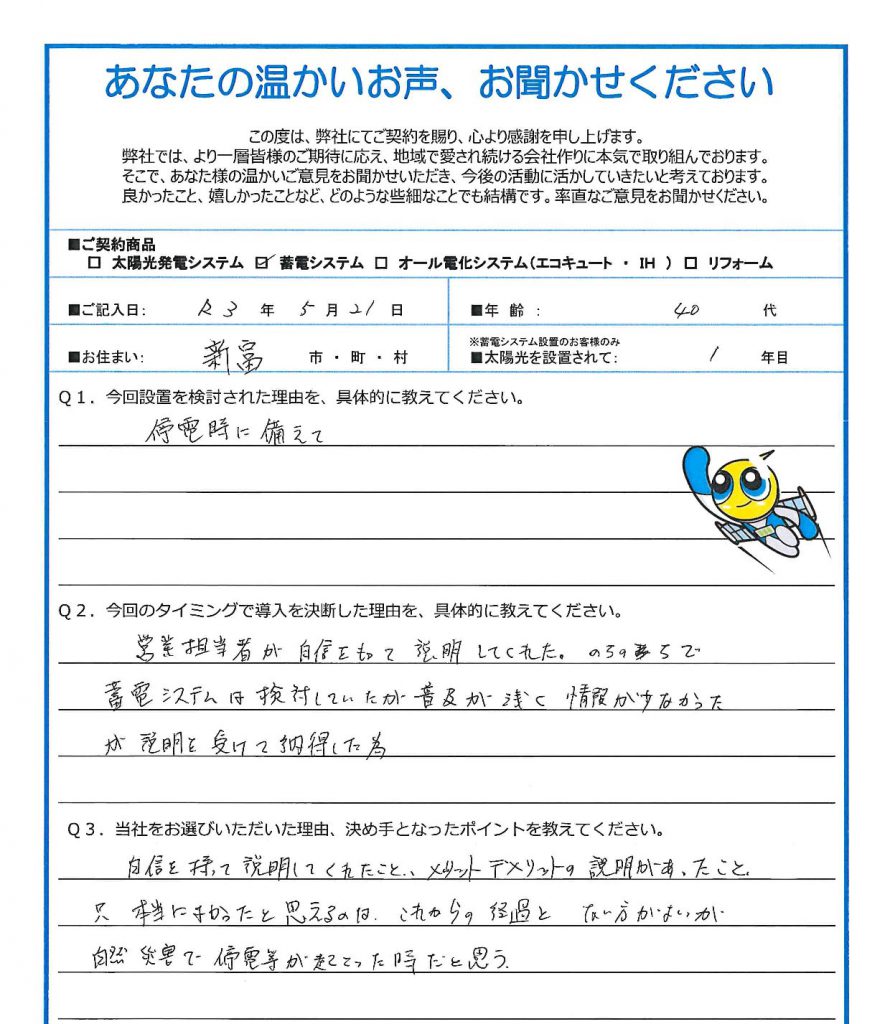 あなたの温かいお声、お聞かせください
この度は、弊社にてご契約を賜り、心より感謝を申し上げます。
弊社では、より一層皆様のご期待に応え、地域で愛され続ける会社作りに本気で取り組んでおります。
そこで、あなた様の温かいご意見をお聞かせいただき、今後の活動に活かしていきたいと考えております。
良かったこと、嬉しかったことなど、どのような些細なことでも結構です。率直なご意見をお聞かせください。
■ご契約商品
□ 太陽光発電システム ☑ 蓄電システム □ オール電化システム(エコキュート ・ IH ) □ リフォーム
■ご記入日: R3 年 5 月 21 日 ■年 齢 : 40 代
※蓄電システム設置のお客様のみ
■お住まい: 新富 市・町・村 ■太陽光を設置されて: 1 年目
Q1. 今回設置を検討された理由を、具体的に教えてください。
停電時に備えて
Q2. 今回のタイミングで導入を決断した理由を、具体的に教えてください。
営業担当者が自信をもって説明してくれた。
蓄電システムは検討していたが普及が浅く情報が少なかった
が説明を受けて納得した為
Q3. 当社をお選びいただいた理由、決め手となったポイントを教えてください。
自信を持って説明してくれたこと、メリットデメリットの説明があったこと。
只 本当によかったと思えるのは、これからの経過と ない方がよいが
自然災害で停電等が起こった時だと思う。